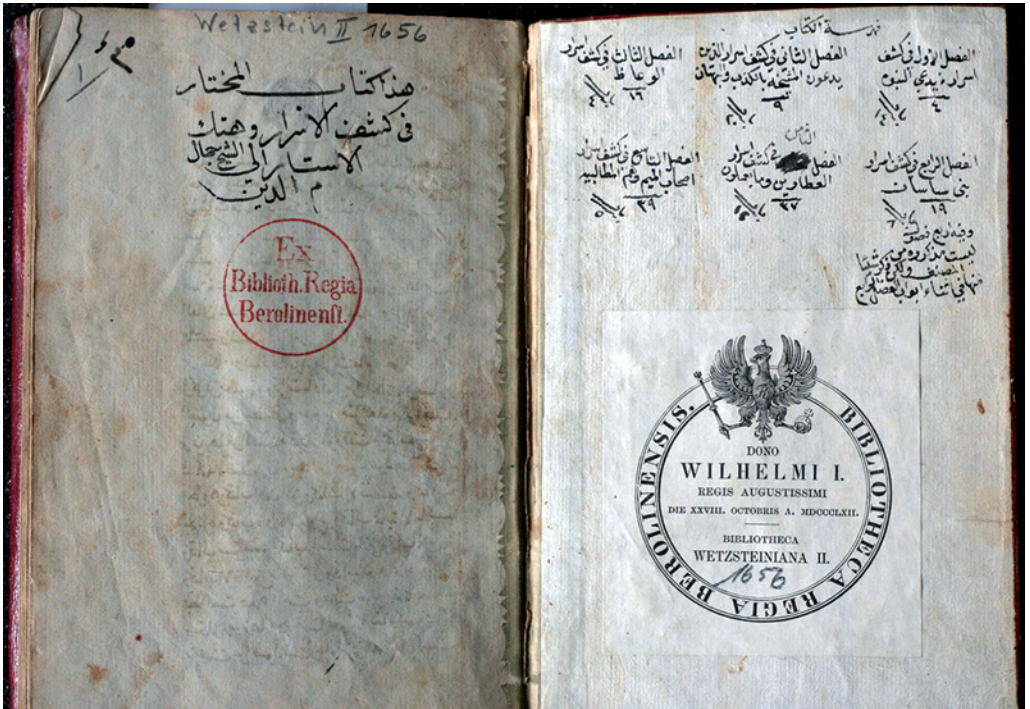 Wetzstein II 1656
هذا كتاب المختار
في كشف الاسرار وهتك
الاستار الى الشيخ جمال
الدين
Ex
Biblioth. Regia
Berolinenſi.
فهرسة الكتاب
الفصل الاول في كشف
اسرار من يدعي النبوه
٤
الفصل الثاني في كشف اسرار الذين
يدعون المشيخة بالكذب والبهتان
٩
الفصل الثالث في كشف اسرار
الوعاظ
١٦
الفصل الرابع في كشف اسرار
بني ساسان
١٩
الثامن
الفصل في كشف اسرار
العطارين وما يعملون
٣٧
الفصل التاسع في كشف اسرار
اصحاب الميم وهم المطالبيه
٣٩
وفيه اربع فصول
ليست مذكورة
BIBLIOTHECA REGIA BEROLINENSIS.
DONO
WILHELMI I.
REGIS AUGUSTISSIMI
DIE XXVIII. OCTOBRIS A. MDCCCLXII.
BIBLIOTHECA
WETZSTEINIANA II.
1656